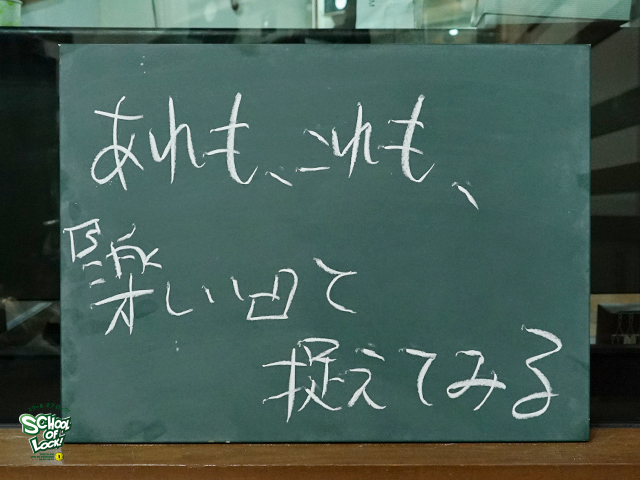 あれも、これも、
『楽しい』て
捉えてみる
SCHOOL
OF
LOCK!